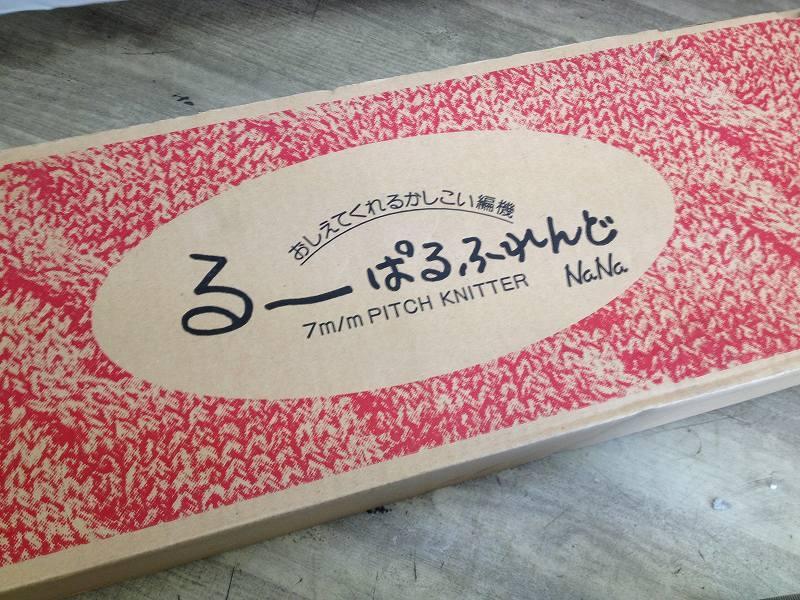 おしえてくれるかしこい編機
るーぱるふれんど
NaNa.
7m/m PITCH KNITTER